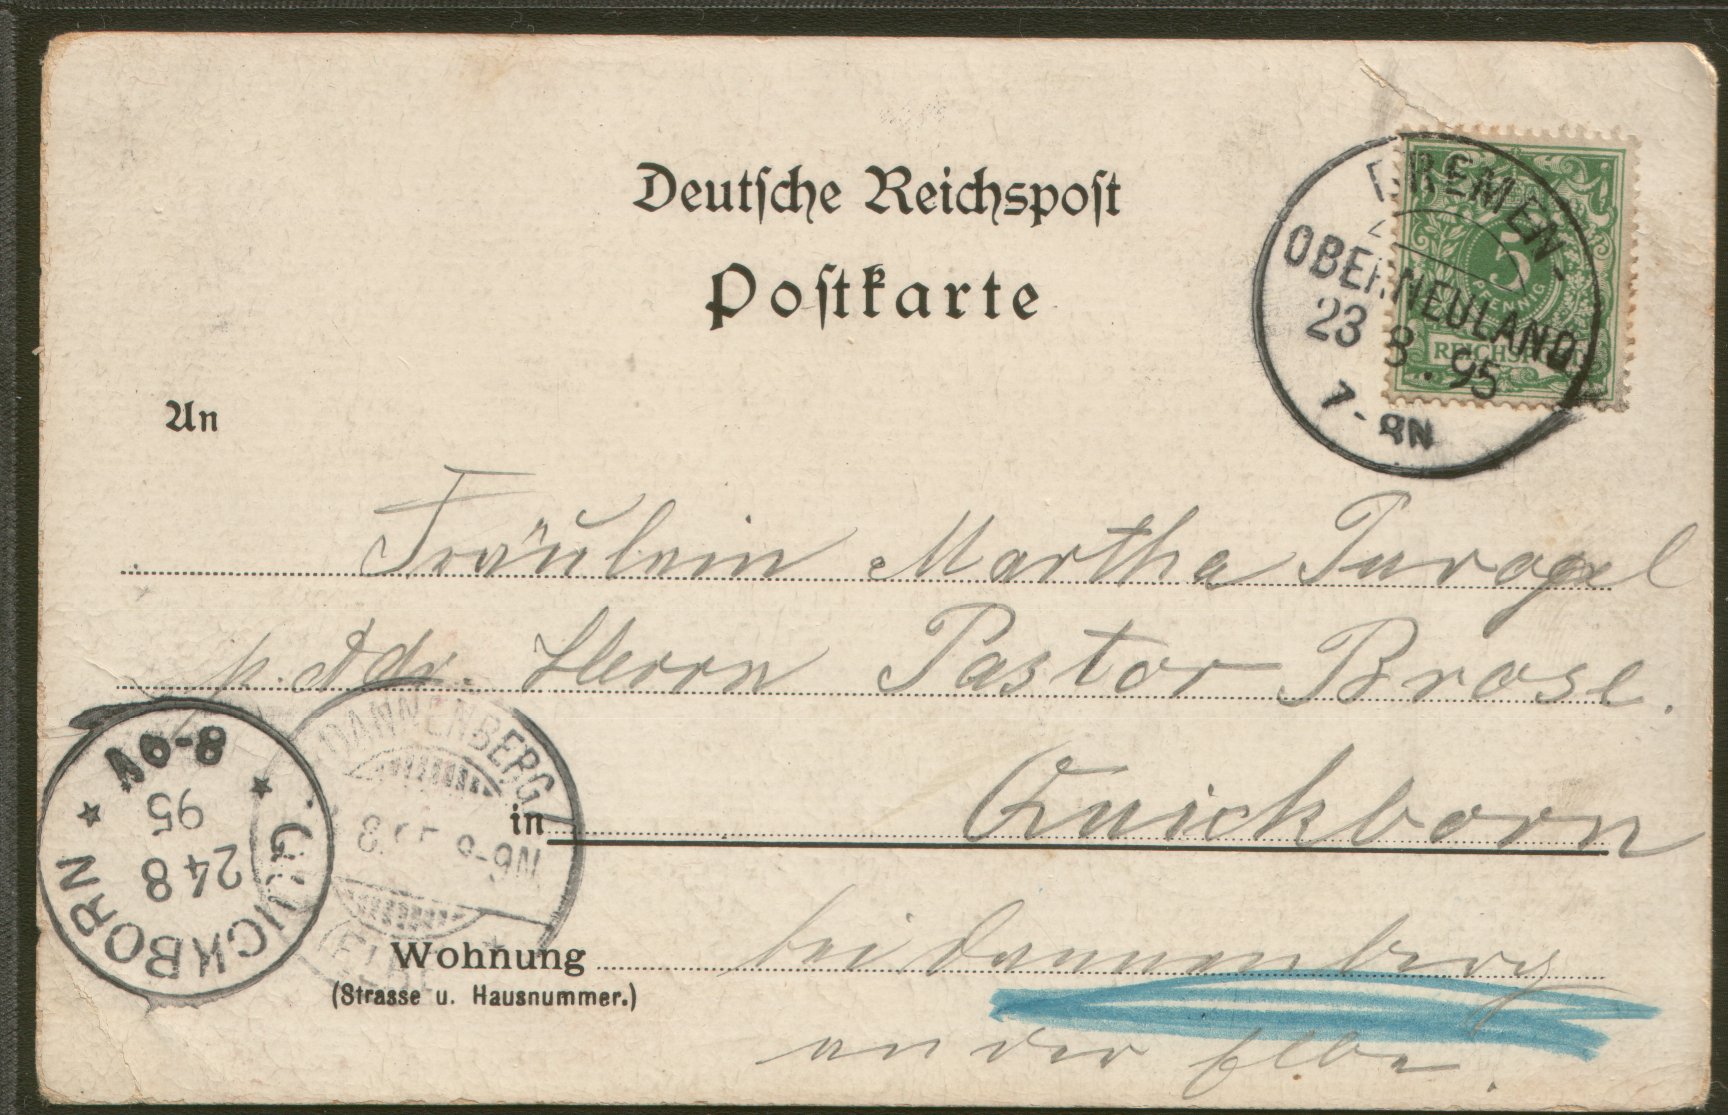 Deutsche Reichspost
Postkarte
BREMEN-
OBERNEULAND
23 8. 95
7-8N
5
PFENNIG
REICHSPOST
An
Fräulein Martha
p. Adr. Herrn Pastor Brase.
in Quickborn
bei Dannenberg
an der Elbe.
Wohnung
(Strasse u. Hausnummer.)
DANNENBERG
8-9N
QUICKBORN
24 8
95